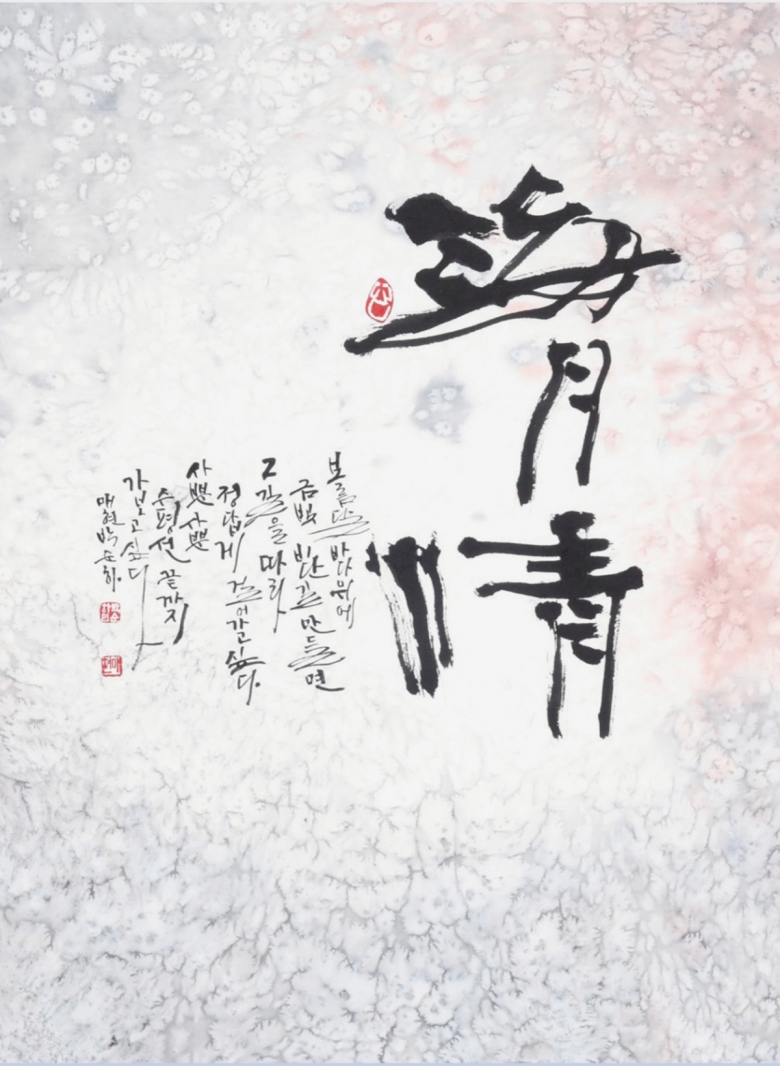 海月情
보름달 바다위에
금빛 비단길 만들면
그 길을 따라
정답게 걸어가고 싶다.
사뿐 사뿐
수평선 끝까지
가보고 싶다
매현 박순하.